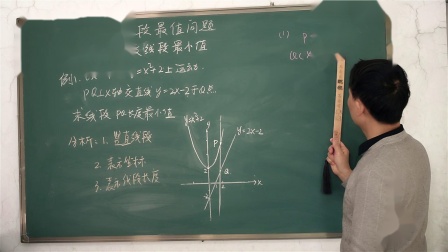 段最值问题
线段最小值
例1.
=x²+2上运动.
PQ⊥x轴交直线 y=2x-2于Q点.
求线段PQ长度最小值
分析:1. 竖直线段
2. 表示坐标
3. 表示线段长度
y=x²+2
y
y=2x-2
P
2
Q
x
(1) P